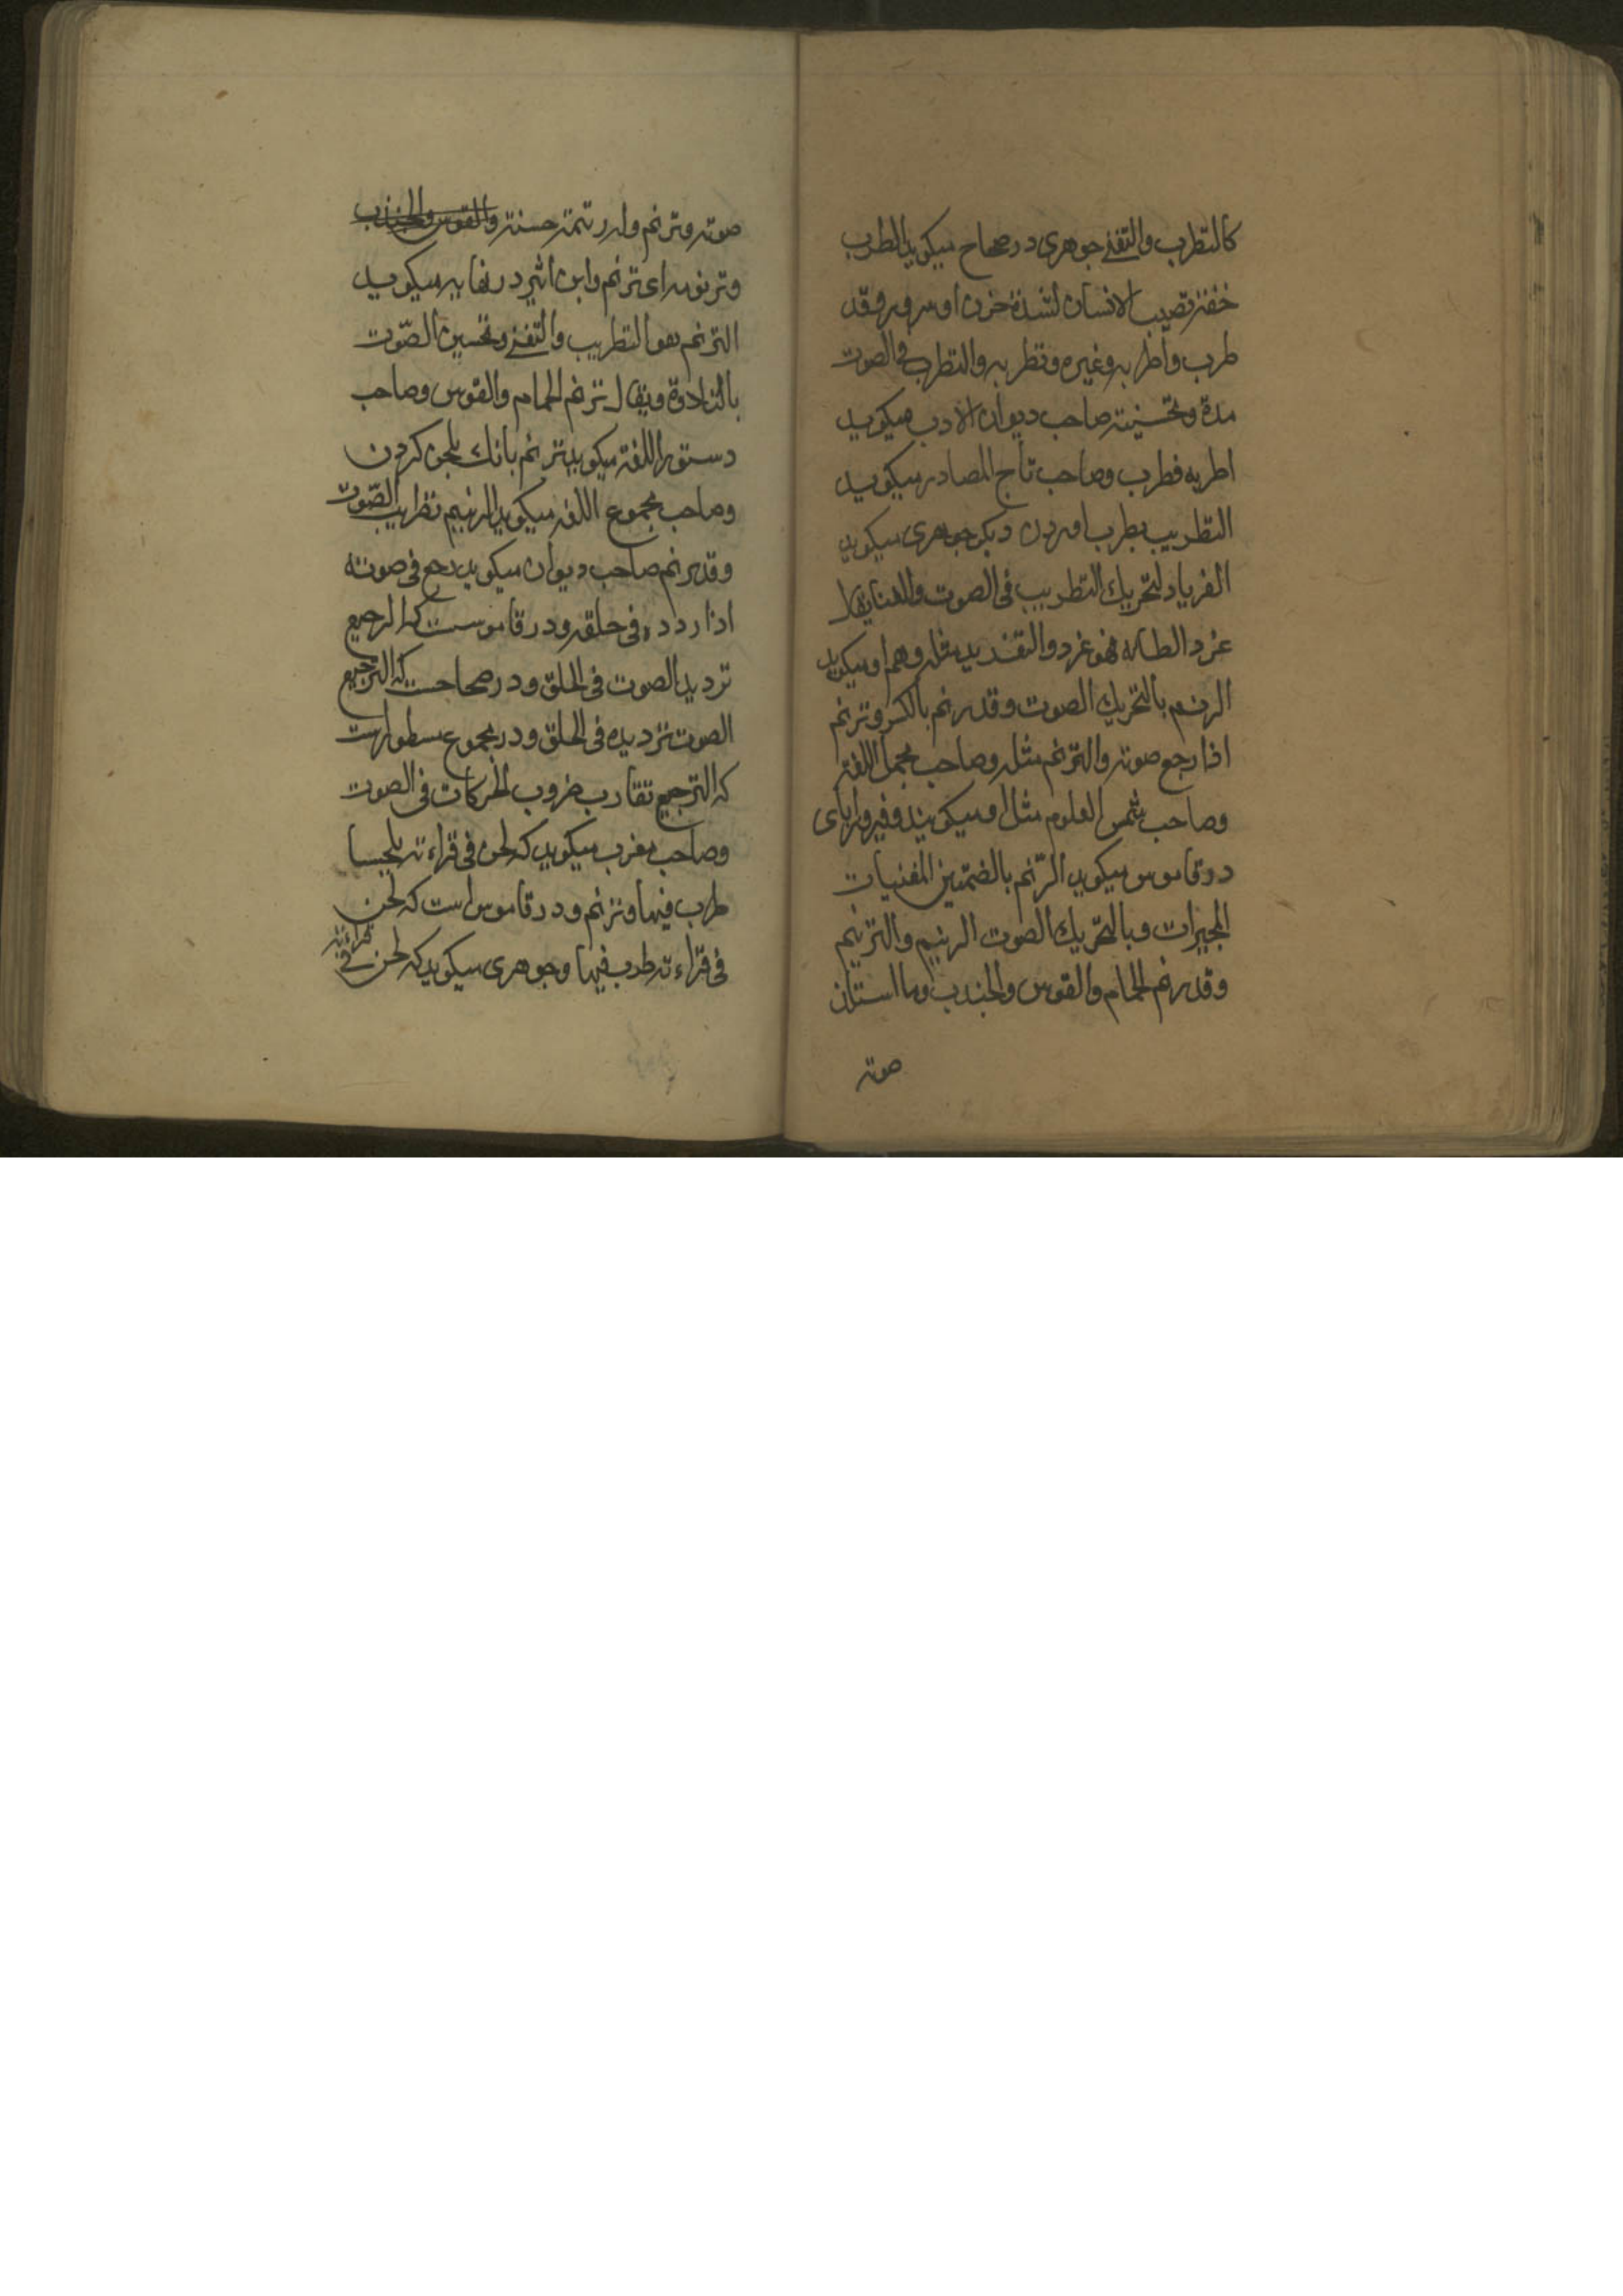 كالتطرب والتغنی جوهری در صحاح میکوید الطرب
خفة تصیب الانسان لشدة حزن او سرور وقد
طرب واطربه وغیره وتطربه والتطرب فی الصوت
مدة وتحسینه صاحب دیوان الادب میکوید
اطربه فطرب وصاحب تاج المصادر میکوید
التطریب بطرب اوردن دیکر جوهری میکوید
الغرباد لتحریك التطریب فی الصوت والغنا یقال
غرد الطائر فهو غرد والتغرید مثله وهم او میکوید
الرنم بالتحریك الصوت وقد رنم بالکسر وترنم
اذا رجع صوته والترنم مثله وصاحب مجمل اللغة
وصاحب شمس العلوم مثل او میکویند وفیروزابادی
در قاموس میکوید الرّنم بالضمتین المغنیات
المجیرات وبالتحریك الصوت الرنیم والترنیم
وقد رنم الحمام والقوس والجندب وما استلذ
صوته
صوته وترنم وله رنمة حسنة والقوس والجندب
وترنوم ای ترنم وابن اثیر در نهایه میکوید
الترنم هو التطریب والتغنی وتحسین الصّوت
بالتلاوة ویقال ترنم الحمام والقوس وصاحب
دستور اللغة میکوید ترنم بانك بلحن کردن
وصاحب مجموع اللغه میکوید الرنیم تطریب الصّوت
وقد رنم صاحب دیوان میکوید رجع فی صوته
اذا ردده فی حلقه ودر قاموست که الرجیع
تردید الصوت فی الحلق ودر صحاحست که الترجیع
الصوت تردیده فی الحلق ودر مجموع مسطورست
که الترجیع تقارب ضروب الحرکات فی الصوت
وصاحب مغرب میکوید که لحن فی قراءته تلحینا
طرب فیها وترنم ودر قاموس است که لحن
فی قراءته طرب فیها وجوهری میکوید که لحن فی قراءته